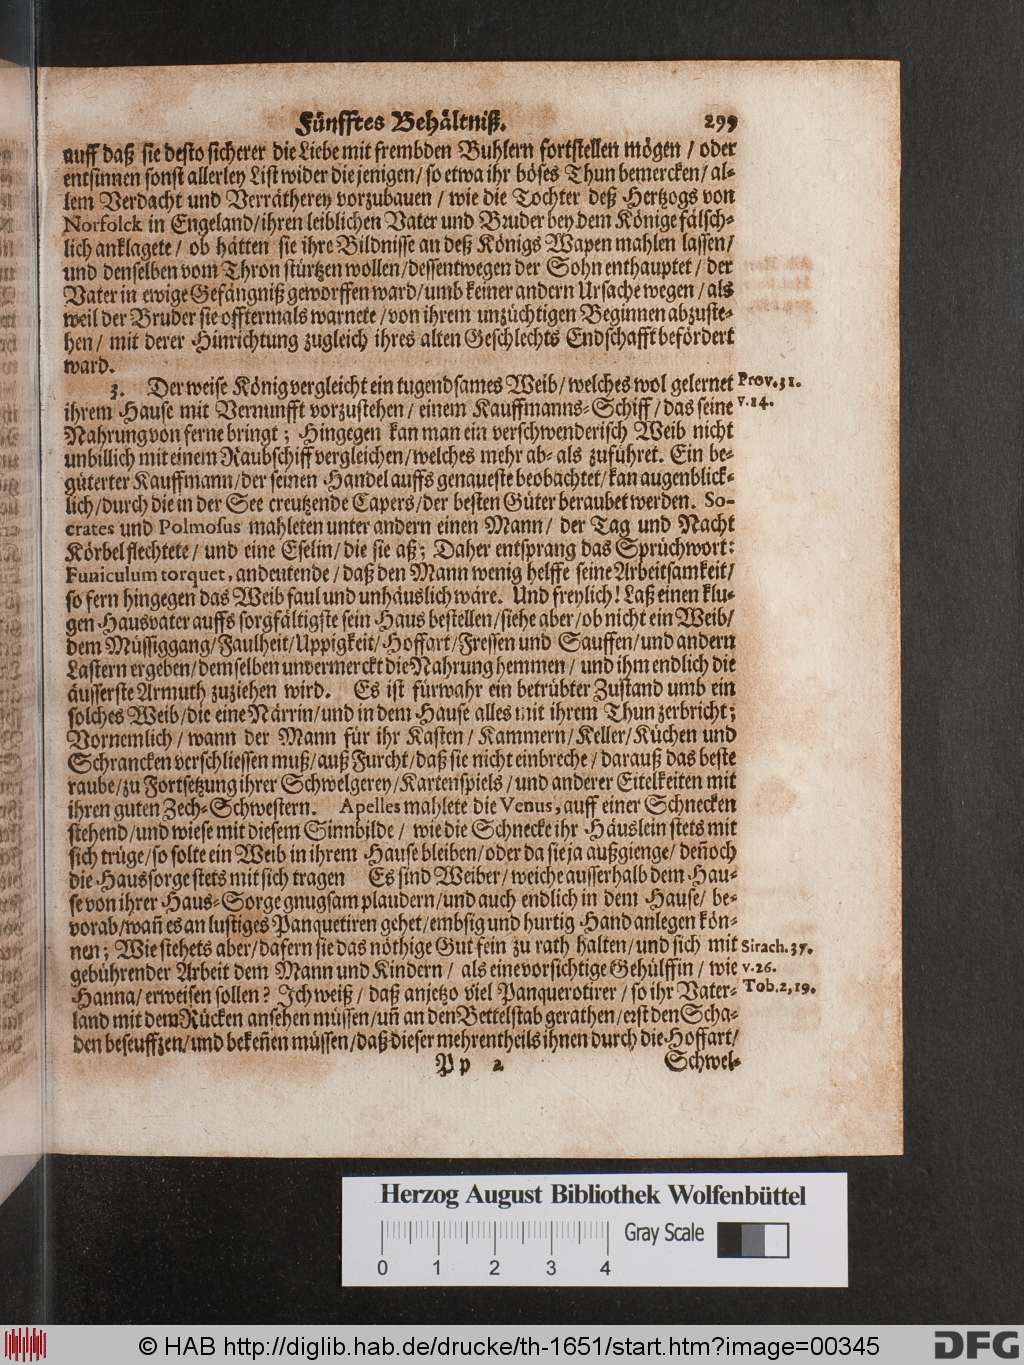 Fünfftes Behältniß. 299
auff daß sie desto sicherer die Liebe mit frembden Buhlern fortstellen mögen / oder
entsinnen sonst allerley List wider die jenigen / so etwa ihr böses Thun bemercken / al-
lem Verdacht und Verrätherey vorzubauen / wie die Tochter deß Hertzogs von
Norfolck in Engeland / ihren leiblichen Vater und Bruder bey dem Könige fälsch-
lich anklagete / ob hätten sie ihre Bildnisse an deß Königs Wapen mahlen lassen /
und denselben vom Thron stürtzen wollen / dessentwegen der Sohn enthauptet / der
Vater in ewige Gefängniß geworffen ward / umb keiner andern Ursache wegen / als
weil der Bruder sie offtermals warnete / von ihrem unzüchtigen Beginnen abzuste-
hen / mit derer Hinrichtung zugleich ihres alten Geschlechts Endschafft befördert
ward.
3. Der weise König vergleicht ein tugendsames Weib / welches wol gelernet
Prov. 31.
v. 14.
ihrem Hause mit Vernunfft vorzustehen / einem Kauffmanns-Schiff / das seine
Nahrung von ferne bringt ; Hingegen kan man ein verschwenderisch Weib nicht
unbillich mit einem Raubschiff vergleichen / welches mehr ab- als zuführet. Ein be-
güterter Kauffmann / der seinen Handel auffs genaueste beobachtet / kan augenblick-
lich / durch die in der See creutzende Capers / der besten Güter beraubet werden. So-
crates und Polmosus mahleten unter andern einen Mann / der Tag und Nacht
Körbel flechtete / und eine Eselin / die sie aß ; Daher entsprang das Sprüchwort:
Funiculum torquet, andeutende / daß den Mann wenig helffe seine Arbeitsamkeit /
so fern hingegen das Weib faul und unhäuslich wäre. Und freylich! Laß einen klu-
gen Hausvater auffs sorgfältigste sein Haus bestellen / siehe aber / ob nicht ein Weib /
dem Müssiggang / Faulheit / Uppigkeit / Hoffart / Fressen und Sauffen / und andern
Lastern ergeben / demselben unvermerckt die Nahrung hemmen / und ihm endlich die
äusserste Armuth zuziehen wird. Es ist fürwahr ein betrübter Zustand umb ein
solches Weib / die eine Närrin / und in dem Hause alles mit ihrem Thun zerbricht ;
Vornemlich / wann der Mann für ihr Kasten / Kammern / Keller / Küchen und
Schrancken verschliessen muß / auß Furcht / daß sie nicht einbreche / darauß das beste
raube / zu Fortsetzung ihrer Schwelgerey / Kartenspiels / und anderer Eitelkeiten mit
ihren guten Zech-Schwestern. Apelles mahlete die Venus, auff einer Schnecken
stehend / und wiese mit diesem Sinnbilde / wie die Schnecke ihr Häuslein stets mit
sich trüge / so solte ein Weib in ihrem Hause bleiben / oder da sie ja außgienge / deñoch
die Haussorge stets mit sich tragen Es sind Weiber / welche ausserhalb dem Hau-
se von ihrer Haus-Sorge gnugsam plaudern / und auch endlich in dem Hause / be-
vorab / wañ es an lustiges Panquetiren gehet / embsig und hurtig Hand anlegen kön-
nen ; Wie stehets aber / dafern sie das nöthige Gut fein zu rath halten / und sich mit
Sirach. 37.
v. 26.
gebührender Arbeit dem Mann und Kindern / als eine vorsichtige Gehülffin / wie
Tob. 2, 19.
Hanna / erweisen sollen? Ich weiß / daß anjetzo viel Panquerotirer / so ihr Vater-
land mit dem Rücken ansehen müssen / uñ an den Bettelstab gerathen / erst den Scha-
den beseuffzen / und bekeñen müssen / daß dieser mehrentheils ihnen durch die Hoffart /
Pp 2 Schwel-
Herzog August Bibliothek Wolfenbüttel
Gray Scale
0 1 2 3 4
© HAB http://diglib.hab.de/drucke/th-1651/start.htm?image=00345
DFG